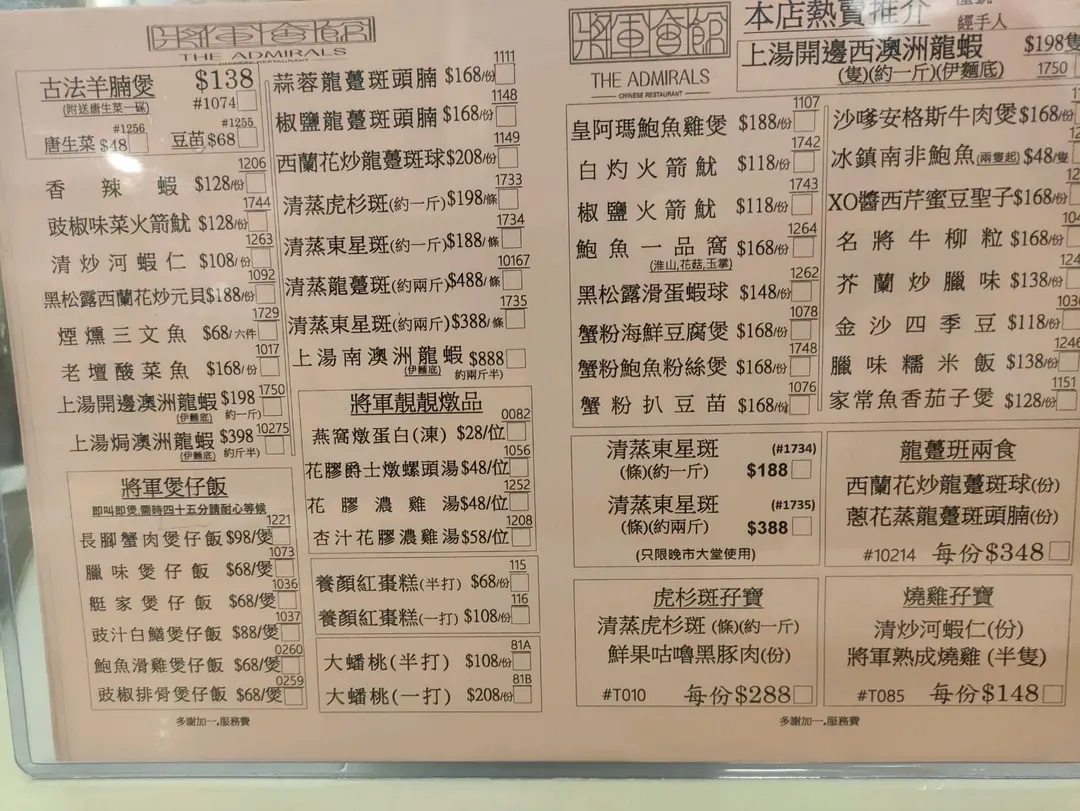 將軍會館
THE ADMIRALS
CHINESE RESTAURANT
古法羊腩煲 $138
(附送唐生菜一碟) #1074
#1256 #1255
唐生菜 $48 豆苗 $68
1206
香辣蝦 $128/份
1744
豉椒味菜火箭魷 $128/份
1263
清炒河蝦仁 $108/份
1092
黑松露西蘭花炒元貝 $188/份
1729
煙燻三文魚 $68/六件
1017
老壇酸菜魚 $168/份
1750
上湯開邊澳洲龍蝦 $198
(伊麵底) 約一斤)
10275
上湯焗澳洲龍蝦 $398
(伊麵底) 約斤半)
將軍煲仔飯
即叫即煲,需時四十五分請耐心等候
1221
長腳蟹肉煲仔飯 $98/煲
1073
臘味煲仔飯 $68/煲
1036
艇家煲仔飯 $68/煲
1037
豉汁白鱔煲仔飯 $88/煲
0260
鮑魚滑雞煲仔飯 $68/煲
0259
豉椒排骨煲仔飯 $68/煲
多謝加一,服務費
1111
蒜蓉龍躉斑頭腩 $168/份
1148
椒鹽龍躉斑頭腩 $168/份
1149
西蘭花炒龍躉斑球 $208/份
1733
清蒸虎杉斑(約一斤) $198/條
1734
清蒸東星斑(約一斤) $188/條
10167
清蒸龍躉斑(約兩斤) $488/條
1735
清蒸東星斑(約兩斤) $388/條
上湯南澳洲龍蝦 $888
(伊麵底) 約兩斤半)
將軍靚靚燉品
0082
燕窩燉蛋白(凍) $28/位
1056
花膠爵士燉螺頭湯 $48/位
1252
花膠濃雞湯 $48/位
1208
杏汁花膠濃雞湯 $58/位
115
養顏紅棗糕(半打) $68/份
116
養顏紅棗糕(一打) $108/份
81A
大蟠桃(半打) $108/份
81B
大蟠桃(一打) $208/份
將軍會館
THE ADMIRALS
CHINESE RESTAURANT
本店熱賣推介
經手人
上湯開邊西澳洲龍蝦 $198隻
(隻)(約一斤)(伊麵底) 1750
1107
皇阿瑪鮑魚雞煲 $188/份
1742
白灼火箭魷 $118/份
1743
椒鹽火箭魷 $118/份
1264
鮑魚一品窩 $168/份
(淮山,花菇,玉掌)
1262
黑松露滑蛋蝦球 $148/份
1078
蟹粉海鮮豆腐煲 $168/份
1748
蟹粉鮑魚粉絲煲 $168/份
1076
蟹粉扒豆苗 $168/份
沙嗲安格斯牛肉煲 $168/份
冰鎮南非鮑魚(兩隻起) $48/隻
XO醬西芹蜜豆聖子 $168/份
名將牛柳粒 $168/份
芥蘭炒臘味 $138/份
金沙四季豆 $118/份
1246
臘味糯米飯 $138/份
1151
家常魚香茄子煲 $128/份
清蒸東星斑 (#1734)
(條)(約一斤) $188
清蒸東星斑 (#1735)
(條)(約兩斤) $388
(只限晚市大堂使用)
龍躉班兩食
西蘭花炒龍躉斑球(份)
蔥花蒸龍躉斑頭腩(份)
#10214 每份$348
虎杉斑孖寶
清蒸虎杉斑 (條)(約一斤)
鮮果咕嚕黑豚肉(份)
#T010 每份$288
燒雞孖寶
清炒河蝦仁(份)
將軍熟成燒雞 (半隻)
#T085 每份$148
多謝加一,服務費